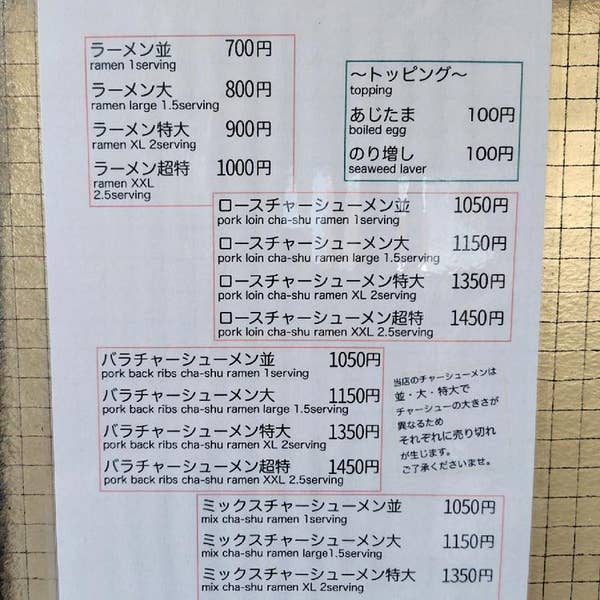 ラーメン並 700円
ramen 1serving
ラーメン大 800円
ramen large 1.5serving
ラーメン特大 900円
ramen XL 2serving
ラーメン超特 1000円
ramen XXL
2.5serving
～トッピング～
topping
あじたま 100円
boiled egg
のり増し 100円
seaweed laver
ロースチャーシューメン並 1050円
pork loin cha-shu ramen 1serving
ロースチャーシューメン大 1150円
pork loin cha-shu ramen large 1.5serving
ロースチャーシューメン特大 1350円
pork loin cha-shu ramen XL 2serving
ロースチャーシューメン超特 1450円
pork loin cha-shu ramen XXL 2.5serving
バラチャーシューメン並 1050円
pork back ribs cha-shu ramen 1serving
バラチャーシューメン大 1150円
pork back ribs cha-shu ramen large 1.5serving
バラチャーシューメン特大 1350円
pork back ribs cha-shu ramen XL 2serving
バラチャーシューメン超特 1450円
pork back ribs cha-shu ramen XXL 2.5serving
当店のチャーシューメンは
並・大・特大で
チャーシューの大きさが
異なるため
それぞれに売り切れ
が生じます。
ご了承くださいませ。
ミックスチャーシューメン並 1050円
mix cha-shu ramen 1serving
ミックスチャーシューメン大 1150円
mix cha-shu ramen large1.5serving
ミックスチャーシューメン特大 1350円
mix cha-shu ramen XL 2serving